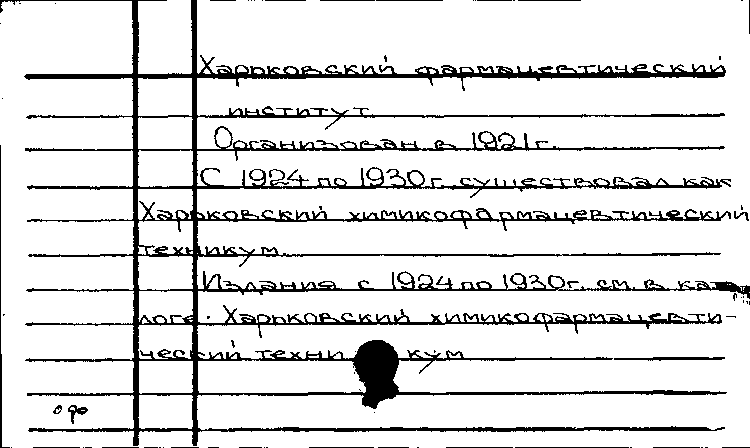 Харьковский фармацевтический
институт.
Организован в 1921г.
С 1924 по 1930г. существовал как
Харьковский химикофармацевтический
техникум.
Издания с 1924 по 1930г. см. в ката-
логе: Харьковский химикофармацевти-
ческий техникум